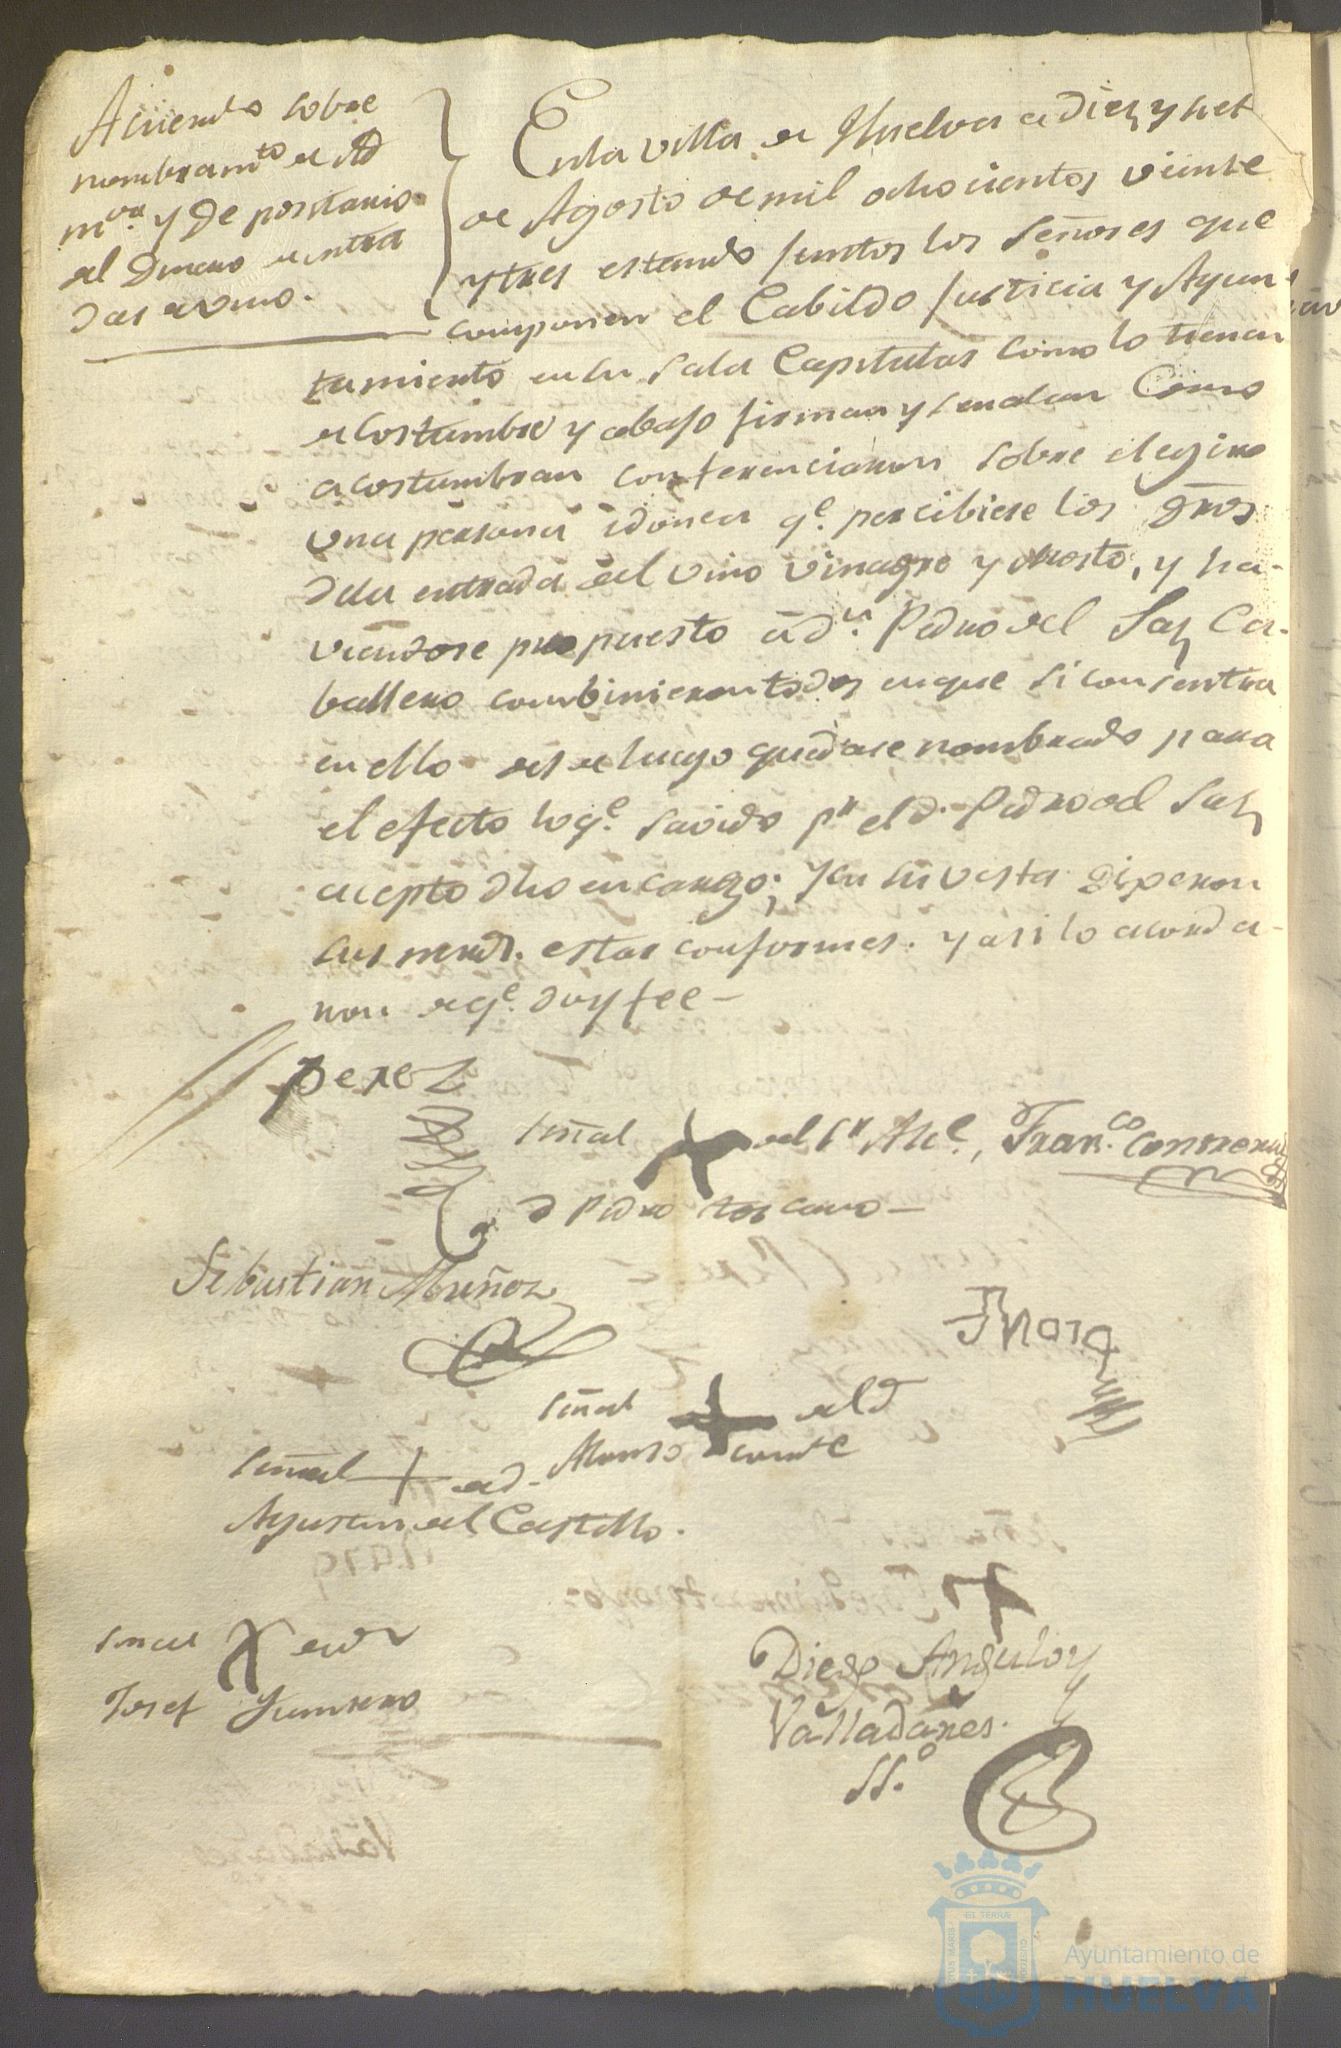 Acuerdo sobre
nombram.to de Ad
m.or y Depositario
del Dinero de entra
das de vino.
En la villa de Huelva a diez y siet
de Agosto de mil ochocientos veinte
y tres estando juntos los Señores que
componen el Cabildo Justicia y Ayun
tamiento en su Sala Capitular como lo tienen
de Costumbre y abajo firman y señalan Como
acostumbran conferenciaron sobre elegir
una persona idonea q.e percibiese los
dela entrada del vino vinagre y Mosto, y ha-
viendose propuesto á d.n Pedro del Saz Ca-
ballero combinieron todos en que si consentia
en ello desde luego quedase nombrado para
el efecto lo q.e savido p.r el d. Pedro del Saz
acepto dho encargo; y en su vista dixeron
sus mrds. estar conformes. y asi lo acorda-
ron de q.e doy fee-
Perez
Señal del S.r Alc.e, Fran.co Contreras
D Pedro Toscano-
Sebastian Muñoz
Señal del D
Alonso
Señal de d.
Agustin del Castillo.
Señal de D
Josef
Diego Angulo y
Valladares.
SS.o
EL TERRAE
Ayuntamiento de
HUELVA